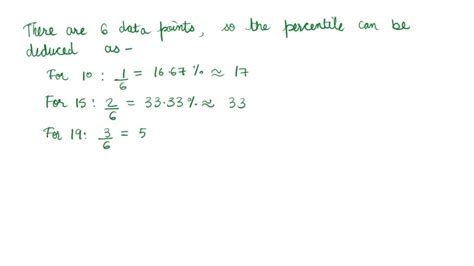 There are 6 data points, so the percentile can be
deduced as -
For 10 : 1/6 = 16.67 % ≈ 17
For 15 : 2/6 = 33.33 % ≈ 33
For 19: 3/6 = 5